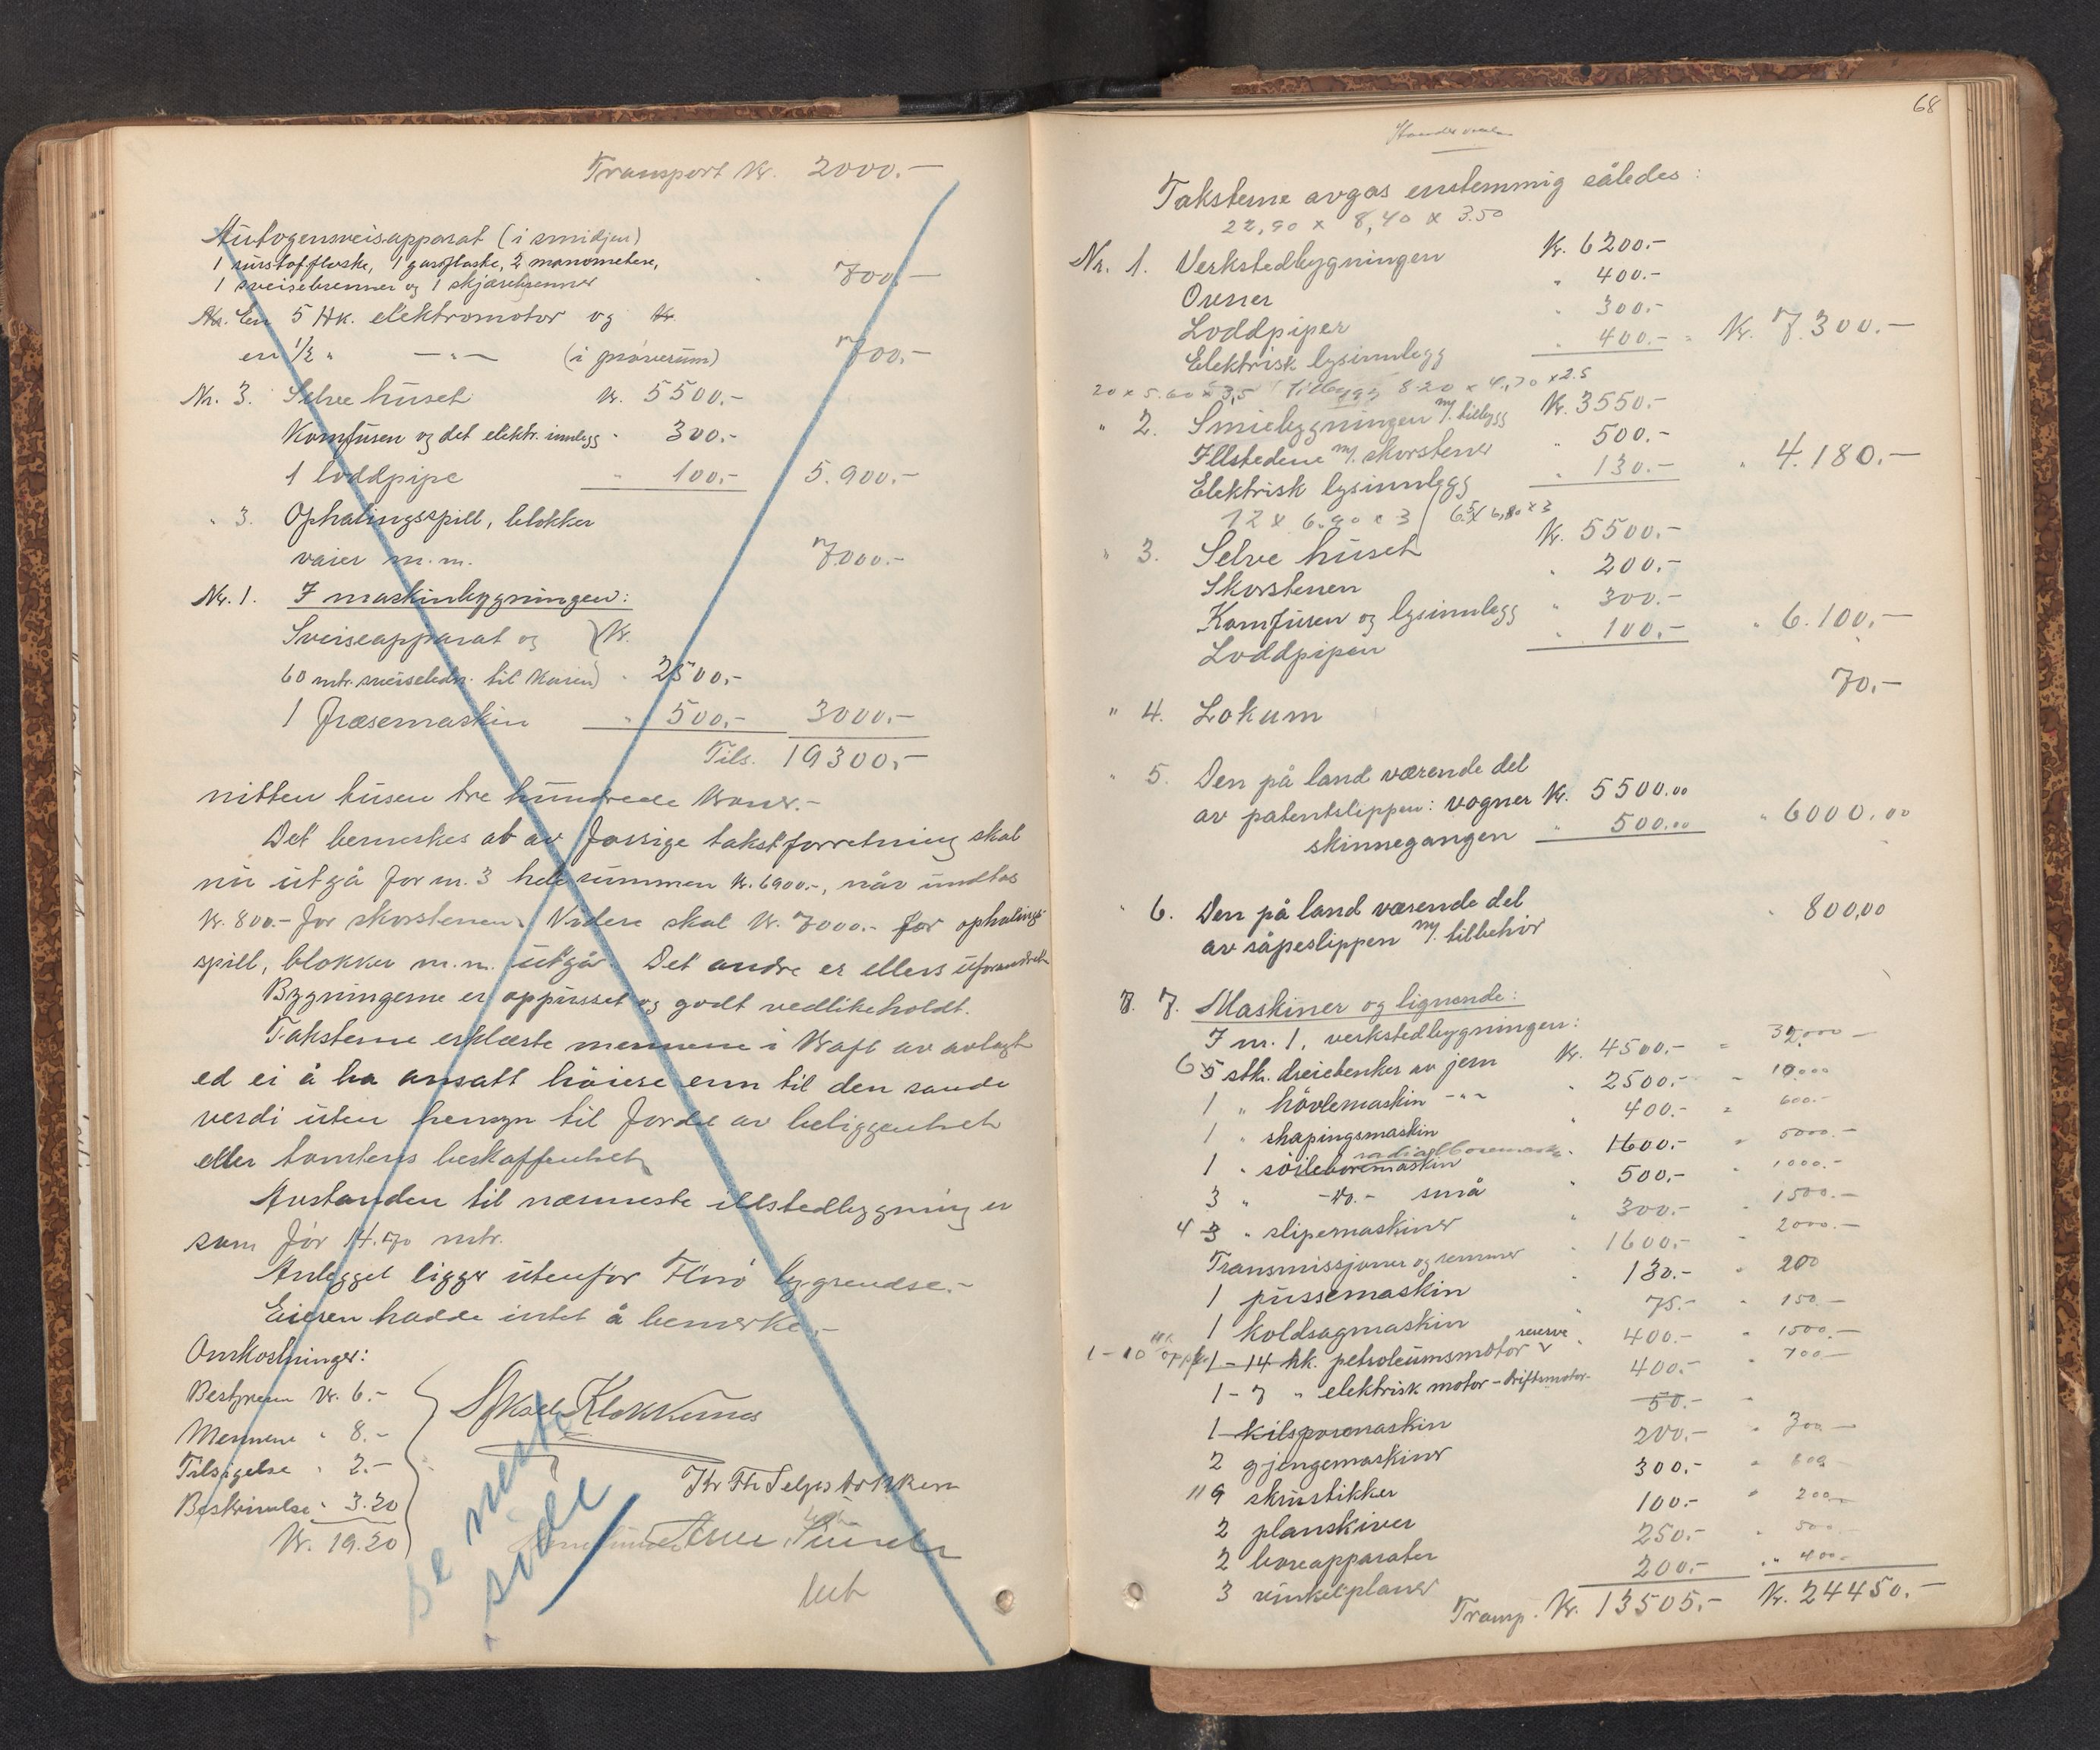 Transport Kr. 2000.-
Autogensveisapparat (i smidjen)
1 surstofflaske, 1 gassflaske, 2 manometere,
1 sveisebrenner og 1 skjærebrenner 700.-
En 5 Hk. elektromotor og
en 1/2 " -"- (i prøverum) 700.-
Nr. 3. Selve huset Kr. 5500.-
Komfuren og det elektr. innlegg " 300.-
1 loddpipe " 100.- 5.900.-
" 3. Ophalingsspill, blokker
vaier m.m. 7000.-
Nr. 1. I maskinbygningen:
Sveiseapparat og } Kr.
60 mtr. sveiseledn. til kaien) " 2500.-
1 fræsemaskin " 500.- 3000.-
Tils. 19300.-
nitten tusen tre hundrede kroner.-
Det bemerkes at av forrige takstforretning skal
nu utgå for nr. 3 hele summen kr. 6900.-, når undtas
kr. 800.- for skorstenen. Videre skal kr. 7000.- for ophalings-
spill, blokker m.m. utgår. Det andre er ellers uforandret
Bygningene er oppusset og godt vedlikeholdt.
Takstene erklærte mennene i kraft av avlagt
ed ei å ha ansatt höiere enn til den sande
verdi uten hensyn til fordel av beliggenhet
eller tomtens beskaffenhet
Avstanden til nærmeste illstedbygning er
som før 14.70 mtr.
Anlegget ligger utenfor Florö bygrendse.-
Eieren hadde intet å bemerke.-
Omkostninger:
Bestyreren Kr. 6.-
Mennene " 8.-
Tilsigelse " 2.-
Beskrivelse " 3.20
Kr. 19.20
Klokkernes
Se neste
side
68
Takstene avgås enstemmig således:
22,90 x 8,40 x 3.50
Nr. 1. Verkstedbygningen Kr. 6200.-
Ovner " 400.-
Loddpiper " 300.-
Elektrisk lysinnlegg " 400.- = Kr. 7.300.-
20 x 5.60 x 3,5 Tilbygg 8.20 x 4,70 x 2.5
" 2. Smiebygningen m/. tilbygg Kr. 3550.-
Illstedene m/. skorstener " 500.-
Elektrisk lysinnlegg " 130.- " 4.180.-
12 x 6.90 x 3 / 6.5 x 6,80 x 3
" 3. Selve huset Kr. 5500.-
Skorstenen " 200.-
Komfuren og lysinnlegg " 300.-
Loddpipen " 100.- " 6.100.-
" 4. Lokum 70.-
" 5. Den på land værende del
av patentslippen: vogner Kr. 5500.00
skinnegangen " 500.00 " 6000.00
" 6. Den på land værende del
av såpeslippen m/. tilbehör " 800,00
7. 7. Maskiner og lignende:
I nr. 1, verkstedbygningen:
6 5 stk. dreiebenker av jern Kr. 4500.-
1 " hövlemaskin -"- " 2500.- " 10.000
1 " shapingsmaskin " 400.- " 600.-
radialboremaskin
1 " söileboremaskin " 1600.- " 5000.-
3 " -do.- små " 500.- " 1000.-
4 3 " slipemaskiner " 300.- " 1500.-
Transmissjoner og remmer " 1600.- " 2000.-
1 pussemaskin " 130.- " 200
1 koldsagmaskin 75.- " 150.-
1-10 1-14 hk. petroleumsmotor reserve " 400.- " 1500.-
1-7 " elektrisk motor - driftsmotor- 400.- " 700.-
1 kilspormaskin 50.-
2 gjengemaskiner 200.- " 300.-
11 9 skrustikker 300.- " 600
2 planskiver 100.- " 200.-
2 boreapparater 250.- " 500.-
3 vinkelplaner 200.- " 400.-
Transp. Kr. 13505.- Kr. 24450.-